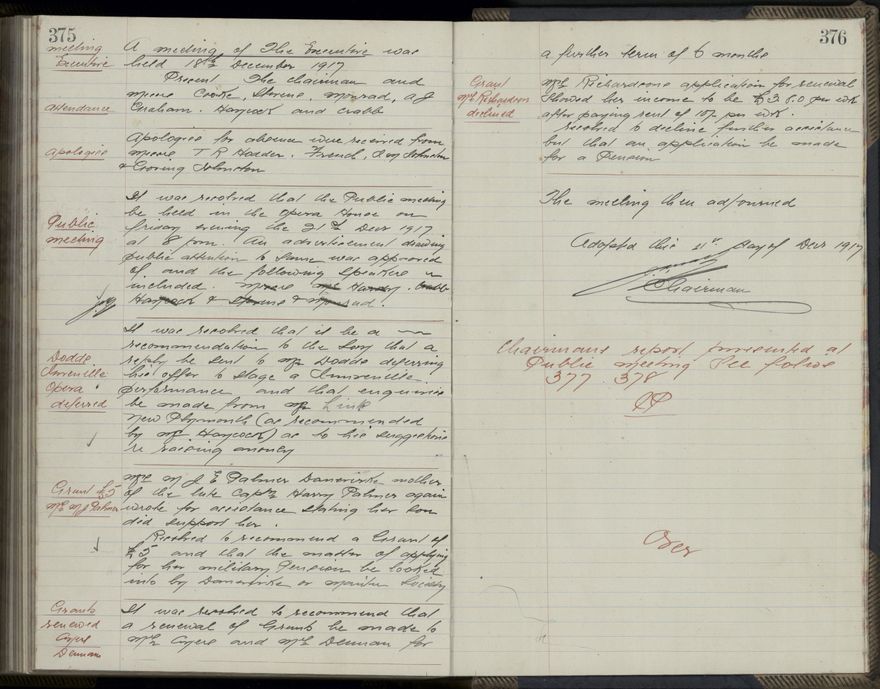 375
meeting
Executive
A meeting of The Executive was
held 18th December 1917
Present The Chairman and
Cooke, Stevens, A J
attendance
Graham. Haycock and Crabb
Apologies for absence were received from
apologies
T R Hodder. French,
Johnston
It was resolved that the Public meeting
be held in the Opera House on
Public
Friday evening the 21st Decr 1917
meeting
at 8 pm. An advertisement drawing
public attention to same was approved
of and the following Speakers
included.
Haycock & Stevens &
It was resolved that it be a
recommendation to the Socy that a
Dodds
reply be sent to Mr Dodds deferring
Juvenile
his offer to stage a Juvenile
Opera
performance and that enquiries
deferred
be made from Mr Link
New Plymouth (as recommended
by Mr Haycock) as to his suggestions
re raising money
Mrs M J E Palmer Danevirke mother
Grant £5
of the late Captn Harry Palmer again
Mrs M J Palmer
wrote for assistance stating her son
did support her.
Resolved to recommend a Grant of
£5 and that the matter of applying
for her military Pension be looked
into by Danevirke or Society
Grants
It was resolved to recommend that
renewed
a renewal of Grants be made to
Ayers
Mrs Ayers and Mrs Denman for
Denman
376
a further term of 6 months
Grant
Mrs Richardson
declined
Mrs Richardsons application for renewal
showed her income to be £3.5.0 per wk
after paying rent of 10/- per wk.
resolved to decline further assistance
but that an application be made
for a Pension
The meeting then adjourned
Adopted this 21st day of Decr 1917
Chairman
Chairmans report presented at
Public meeting See folios
377. 378
Over